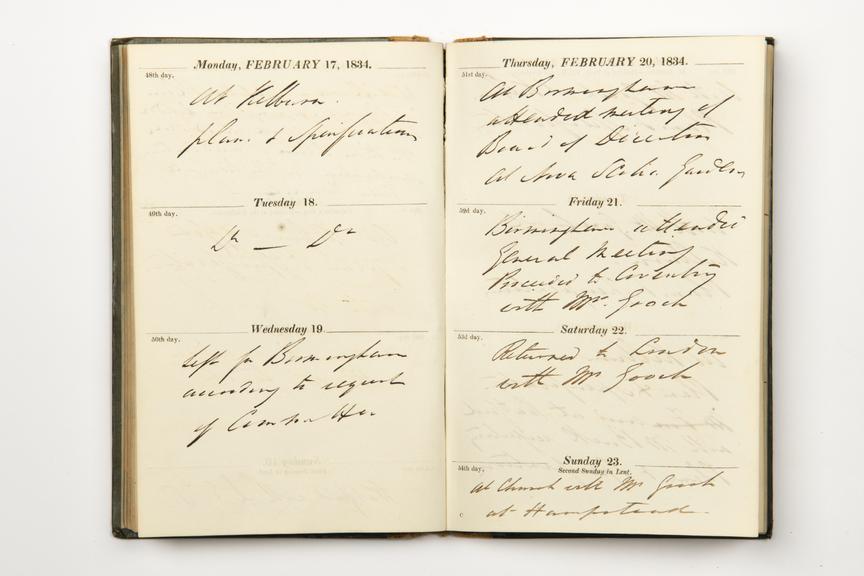 Monday, FEBRUARY 17, 1834.
48th day.
At Kilburn.
plans & Specifications
Tuesday 18.
49th day.
Do — Do
Wednesday 19.
50th day.
Left for Birmingham
according to request
of Committee
Thursday, FEBRUARY 20, 1834.
51st day.
At Birmingham
attended meeting of
Board of Directors
at Nova Scotia Gardens
Friday 21.
52d day.
Birmingham attended
General Meeting
Proceeded to Coventry
with Mr. Gooch
Saturday 22.
53d day.
Returned to London
with Mr Gooch
Sunday 23.
Second Sunday in Lent.
54th day.
At Church with Mr Gooch
at Hampstead.
C